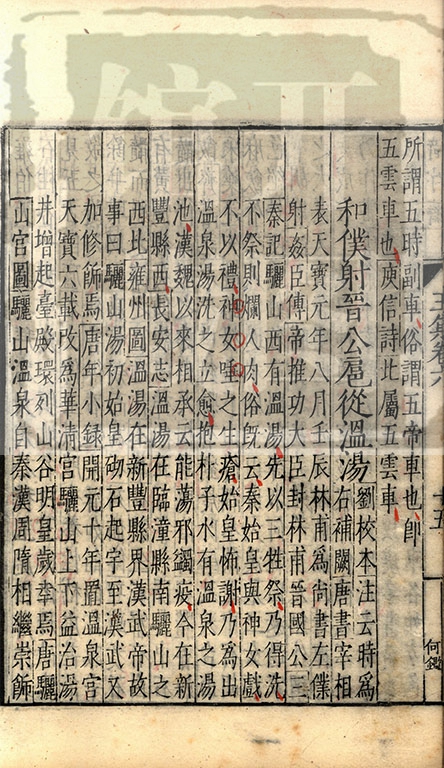 所謂五時副車俗謂五帝車也卽
五雲車也庾信詩北屬五雲車
和僕射晉公扈從溫湯
劉校本注云時爲
右補闕唐書宰相
表天寶元年八月壬辰林甫爲尚書左僕
射姦臣傳帝推功大臣封林甫晉國公三
秦記驪山西有溫湯先以三牲祭乃得洗
不祭則爛人肉俗旣云秦始皇與神女戲
不以禮神女唾之生瘡始皇怖謝乃爲出
溫泉湯洗之立愈抱朴子水有溫泉之湯
池漢魏以來相承云能蕩邪蠲疫今在新
豐縣西長安志溫湯在臨潼縣南驪山之
西北雍州圖溫湯在新豐縣界漢武帝故
事曰驪山湯初始皇砌石起宇至漢武又
加修飾焉唐年小錄開元十年置溫泉宮
天寶六載改爲華清宮驪山上下益治湯
井增起臺殿環列山谷明皇歲幸焉唐驪
山宮圖驪山溫泉自秦漢周隋相繼崇飾